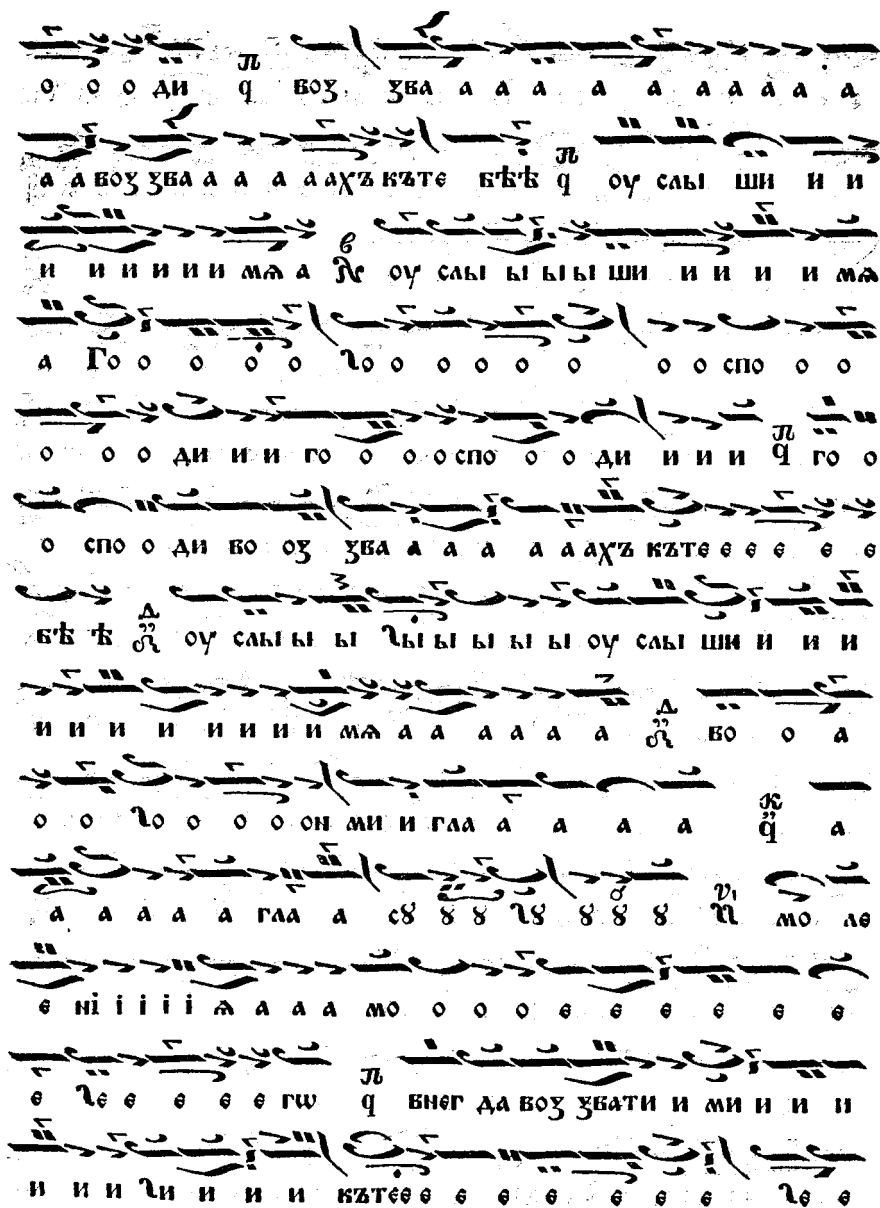 о о о ди п҃ ч воꙁ ꙁва а а а а а а а а а а
а а воꙁ ꙁва а а а а ахъ къте бѣѣ п҃ ч оу слы ши и и
и и и и и и мѧ а в оу слы ы ы ы ши и и и и мѧ
а Го о о о о го о о о о о о о спо о о
о о о ди и и го о о о спо о о ди и и и п҃ ч го о
о спо о ди во оꙁ ꙁва а а а а а ахъ къте е е е е
бѣ ѣ д оу слы ы ы гы ы ы ы ы оу слы ши и и и
и и и и и и и мѧ а а а а а а д во о а
о о го о о о он ми и гла а а а а к ч а
а а а а а гла а сꙋ ꙋ ꙋ гꙋ ꙋ ꙋ ꙋ мо ле
е ні і і і і ѧ а а а мо о о о е е е е е е
е ге е е е е гѡ п҃ ч внег да воꙁ ꙁвати и ми и и и
и и и ги и и и къте е е е е е е е е е ге е